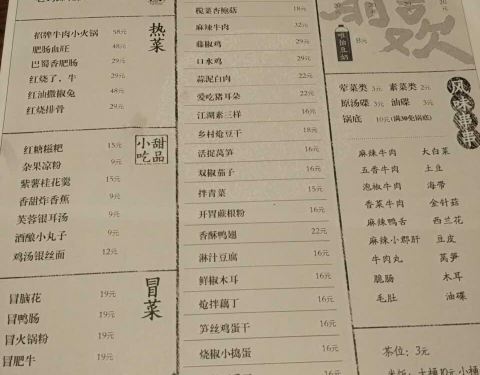 热菜
招牌牛肉小火锅 58元
肥肠血旺 48元
巴蜀香肥肠 29元
红烧了，牛 29元
红油撒椒兔 48元
红烧排骨 29元
甜品小吃
红糖糍粑 15元
杂果凉粉 9元
紫薯桂花羹 15元
香甜炸香蕉 9元
芙蓉银耳汤 9元
酒酿小丸子 9元
鸡汤银丝面 12元
冒菜
冒脑花 19元
冒鸭肠 19元
冒火锅粉 19元
冒肥牛 19元
榄菜杏鲍菇 18元
麻辣牛肉 32元
藤椒鸡 29元
口水鸡 29元
蒜泥白肉 29元
爱吃猪耳朵 29元
江湖素三样 16元
乡村炝豆干 18元
活捉莴笋 16元
双椒茄子 16元
拌青菜 15元
开胃蕨根粉 16元
香酥鸭翅 22元
淋汁豆腐 16元
鲜椒木耳 16元
炝拌藕丁 16元
笋丝鸡蛋干 16元
烧椒小捣蛋 16元
唯怡豆奶
8元
欢
风味串串
荤菜类 3元 素菜类 2元
原汤碟 3元 油碟 3元
锅底 10元(满30免锅底)
麻辣牛肉 大白菜
五香牛肉 土豆
泡椒牛肉 海带
香菜牛肉 金针菇
麻辣鸭舌 西兰花
麻辣小郡肝 豆皮
牛肉丸 莴笋
脆肠 木耳
毛肚 油碟
茶位：3元